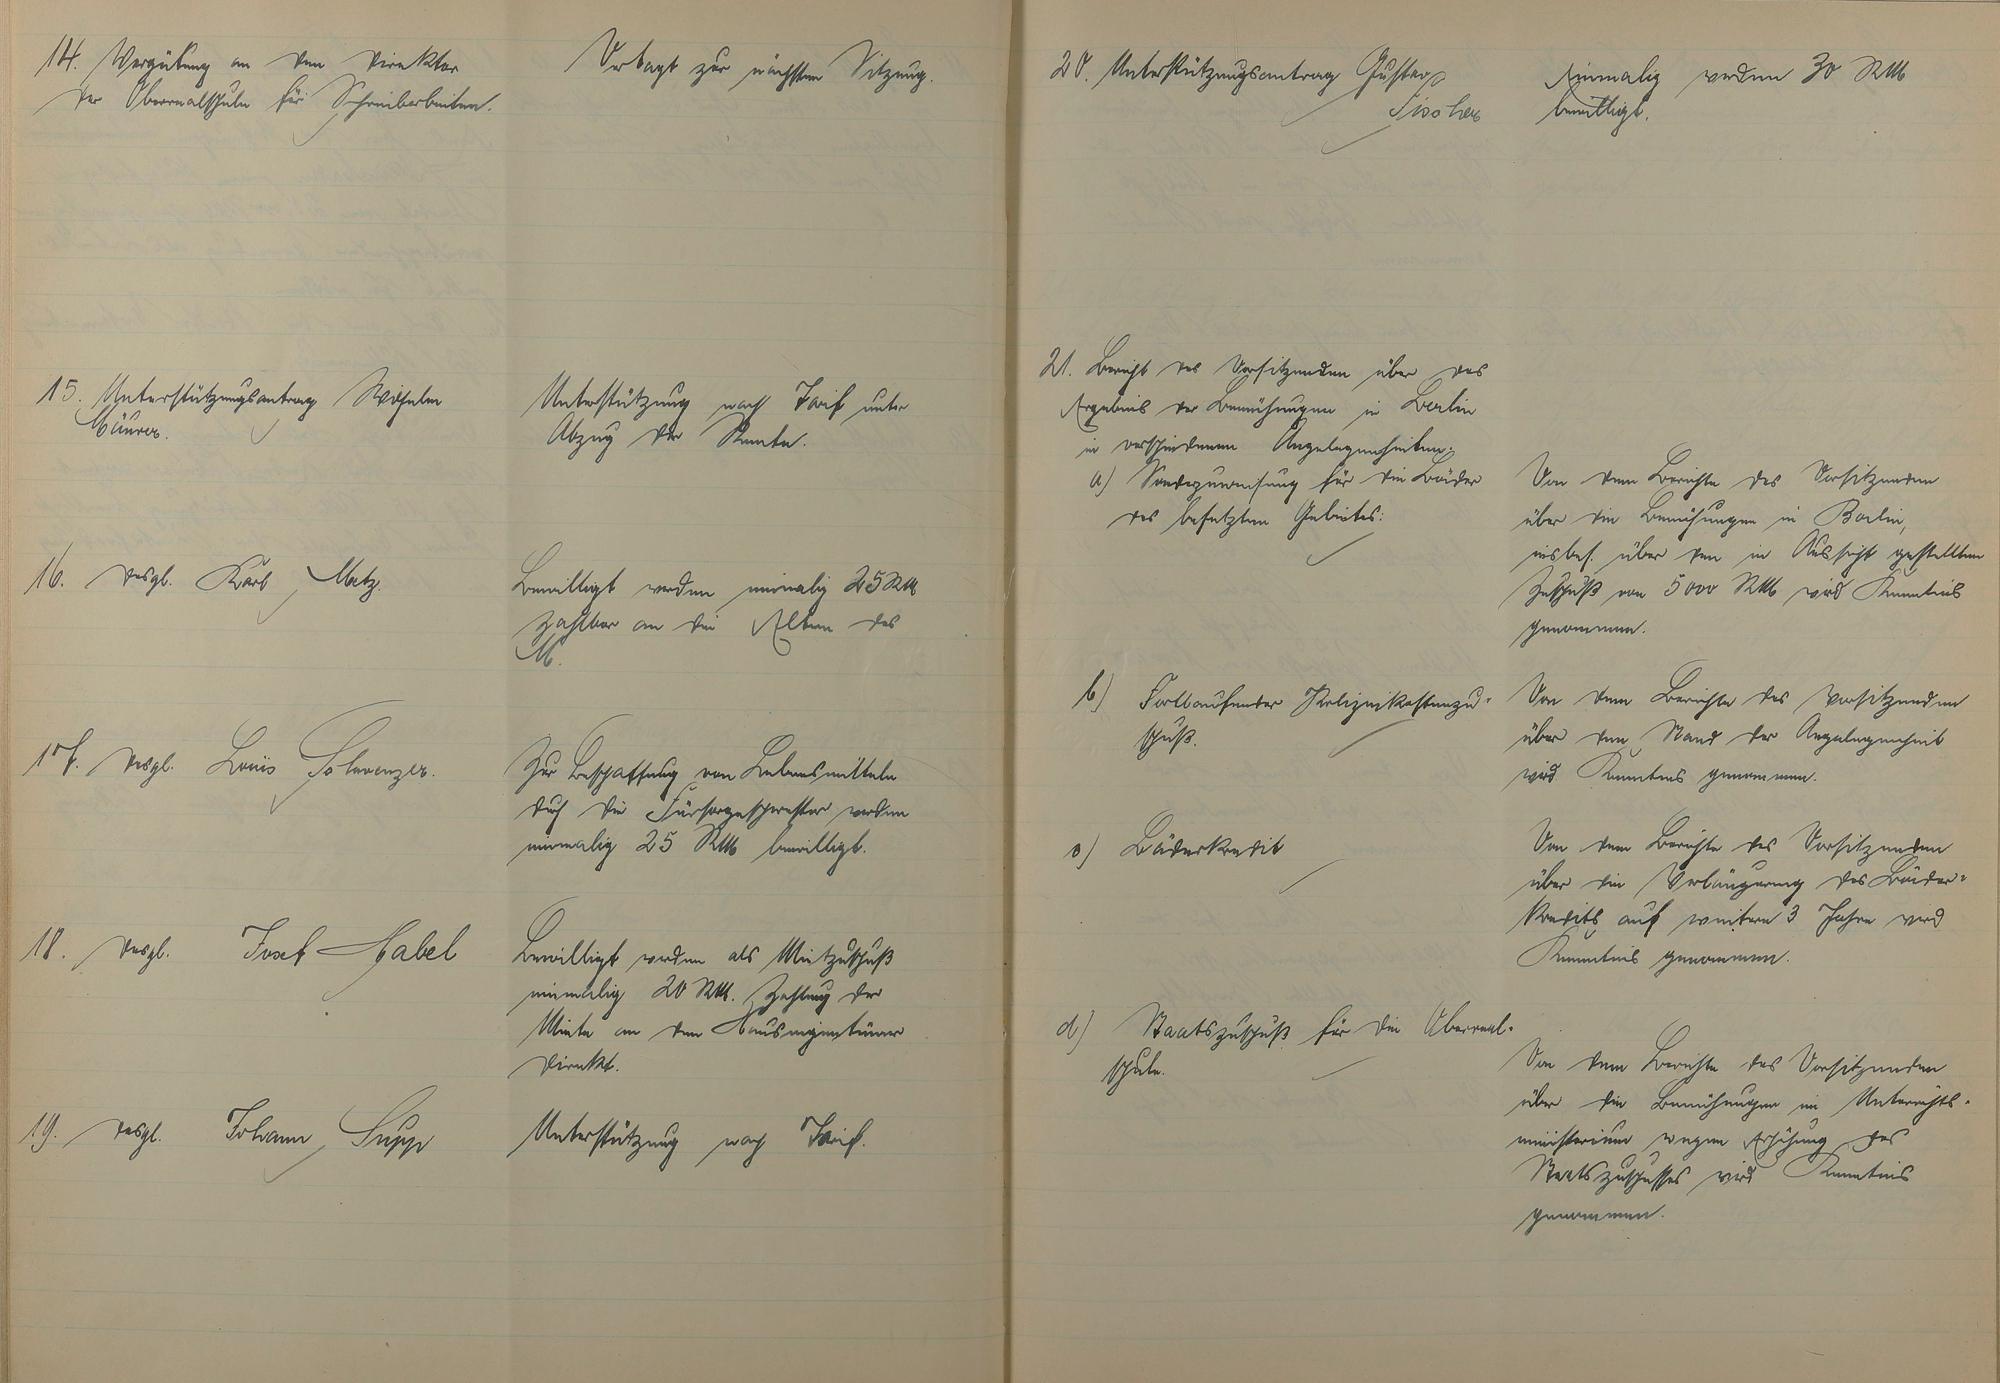 14. Vergütung an den Direktor
der Oberrealschule für Schreibarbeiten.
Vertagt zur nächsten Sitzung.
15. Unterstützungsantrag Wilhelm
Mäurer.
Unterstützung nach Tarif unter
Abzug der Rente.
16. desgl. Karl Metz.
Bewilligt werden einmalig 25 RM
zahlbar an die Eltern des
M.
17. desgl. Louis
Zur Beschaffung von Lebensmitteln
durch die Fürsorgeschwester werden
einmalig 25 RM bewilligt.
18. desgl. Josef Habel
Bewilligt werden als Mietzuschuß
einmalig 20 RM. Zahlung der
Miete an den Hauseigentümer
direkt.
19. desgl. Johann Supp
Unterstützung nach Tarif.
20. Unterstützungsantrag Gustav
Fischer
Einmalig werden 30 RM
bewilligt.
21. Bericht des Vorsitzenden über das
Ergebnis der Bemühungen in Berlin
in verschiedenen Angelegenheiten:
a) Sonderzuweisung für die Bäder
des besetzten Gebietes:
Von dem Berichte des Vorsitzenden
über die Bemühungen in Berlin,
insbes. über den in Aussicht gestellten
Zuschuß von 5000 RM wird Kenntnis
genommen.
b) Fortlaufender Polizeikostenzu-
schuß.
Von dem Berichte des Vorsitzenden
über den Stand der Angelegenheit
wird Kenntnis genommen.
c) Bäderkredit
Von dem Berichte des Vorsitzenden
über die Verlängerung des Bäder-
kredits auf weitere 3 Jahre wird
Kenntnis genommen.
d) Staatszuschuß für die Oberreal-
schule.
Von dem Berichte des Vorsitzenden
über die Bemühungen im Unterrichts-
ministerium wegen Erhöhung des
Staatszuschusses wird Kenntnis
genommen.